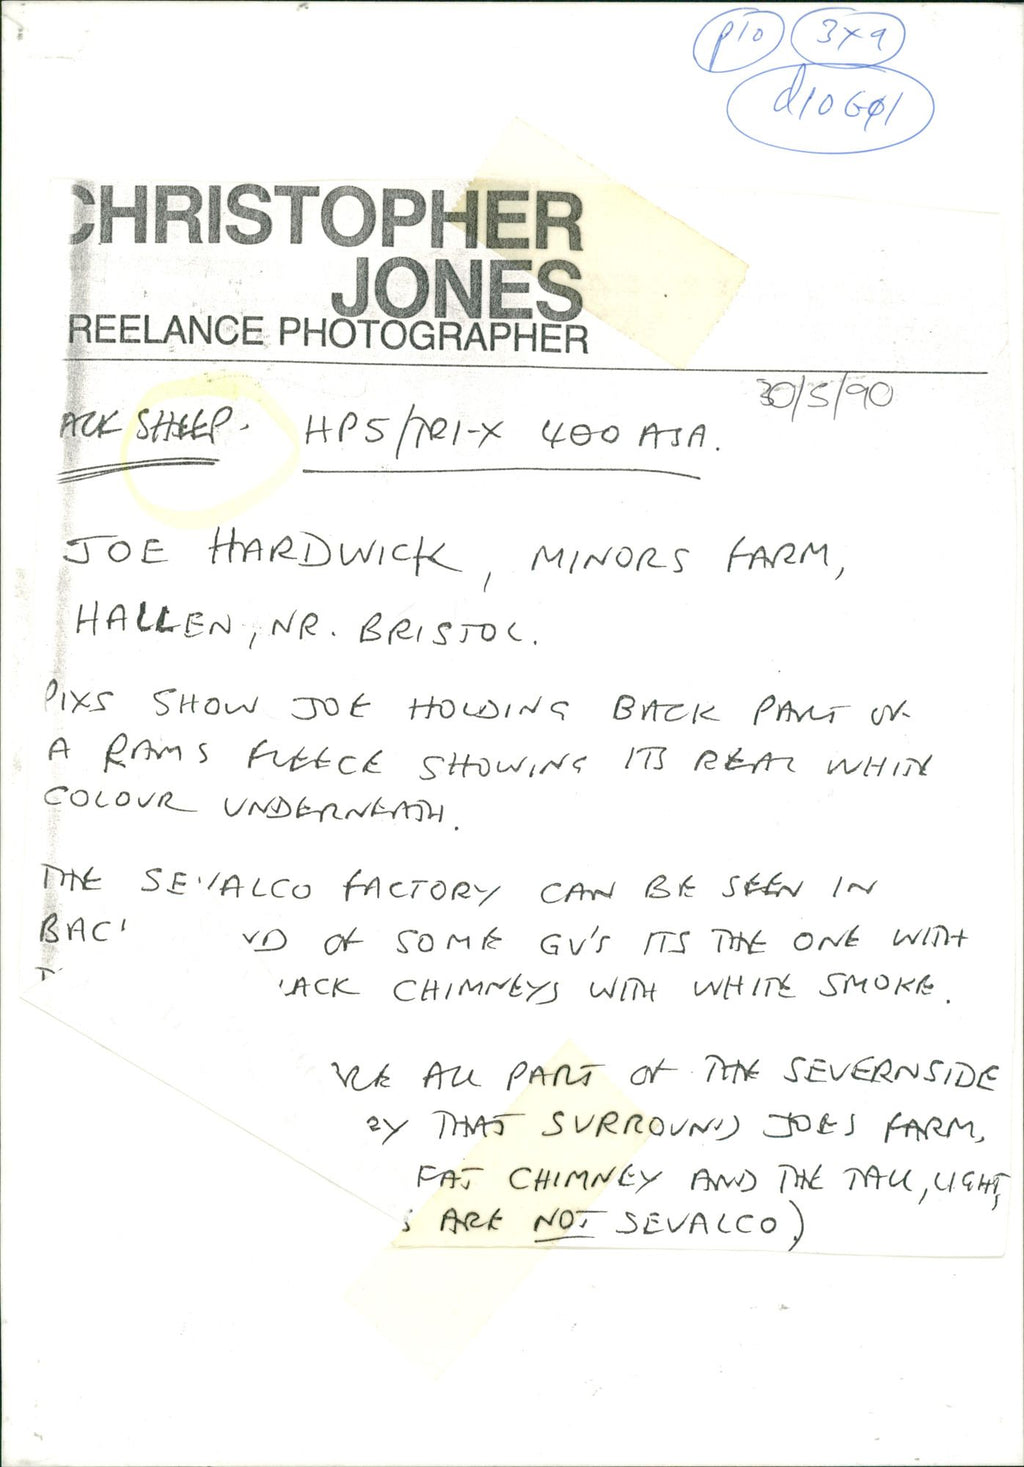 p10 3x9
d10G01
CHRISTOPHER
JONES
REELANCE PHOTOGRAPHER
30/5/90
ACK SHEEP. HP5/TRI-X 400 ASA.
JOE HARDWICK, MINORS FARM,
HALLEN, NR. BRISTOL.
PIXS SHOW JOE HOLDING BACK PART OF
A RAMS FLEECE SHOWING ITS REAL WHITE
COLOUR UNDERNEATH.
THE SEVALCO FACTORY CAN BE SEEN IN
BAC ND OF SOME GV'S ITS THE ONE WITH
T ACK CHIMNEYS WITH WHITE SMOKE.
RE ALL PART OF THE SEVERNSIDE
BY THAT SURROUND JOES FARM,
FAT CHIMNEY AND THE TALL, LIGHT,
S ARE NOT SEVALCO)